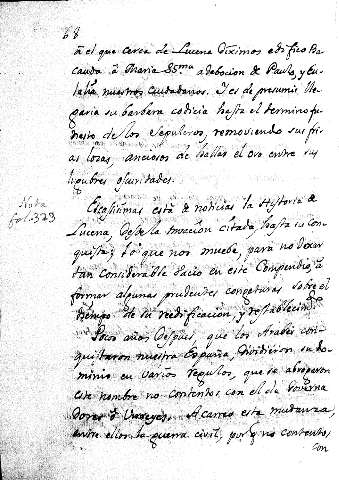 68
ñ el que cerca de Lucena diximos edificó Ba
cauda á Maria SS.ma a deboción de Paulo, y Eu-
lalia nuestros ciudadanos. Y es de presumir lle-
garia su barbara codicia hasta el termino fu-
nesto de los Sepulcros, removiendo sus fri-
as losas, anciosos de hallar el oro entre sus
lugubres obscuridades.
Nota
fol. 323
Escasissima está de noticias la Historia de
Lucena desde la invacion citada, hasta su con-
quista; lo que nos mueve, para no dexar
tan considerable bacio en este Compendio, á
formar algunas prudentes congeturas sobre el
tiempo de su reedificacion, y restablecim.to
Pocos años despues, que los Arabes con-
quistaron nuestra España, dividieron su do-
minio en varios regulos, que se abrogaron
este nombre no contentos con el de Governa
dores ó Virreyes. Acarreo esta mudanza,
entre ellos la guerra civil, porq no contentos,
con